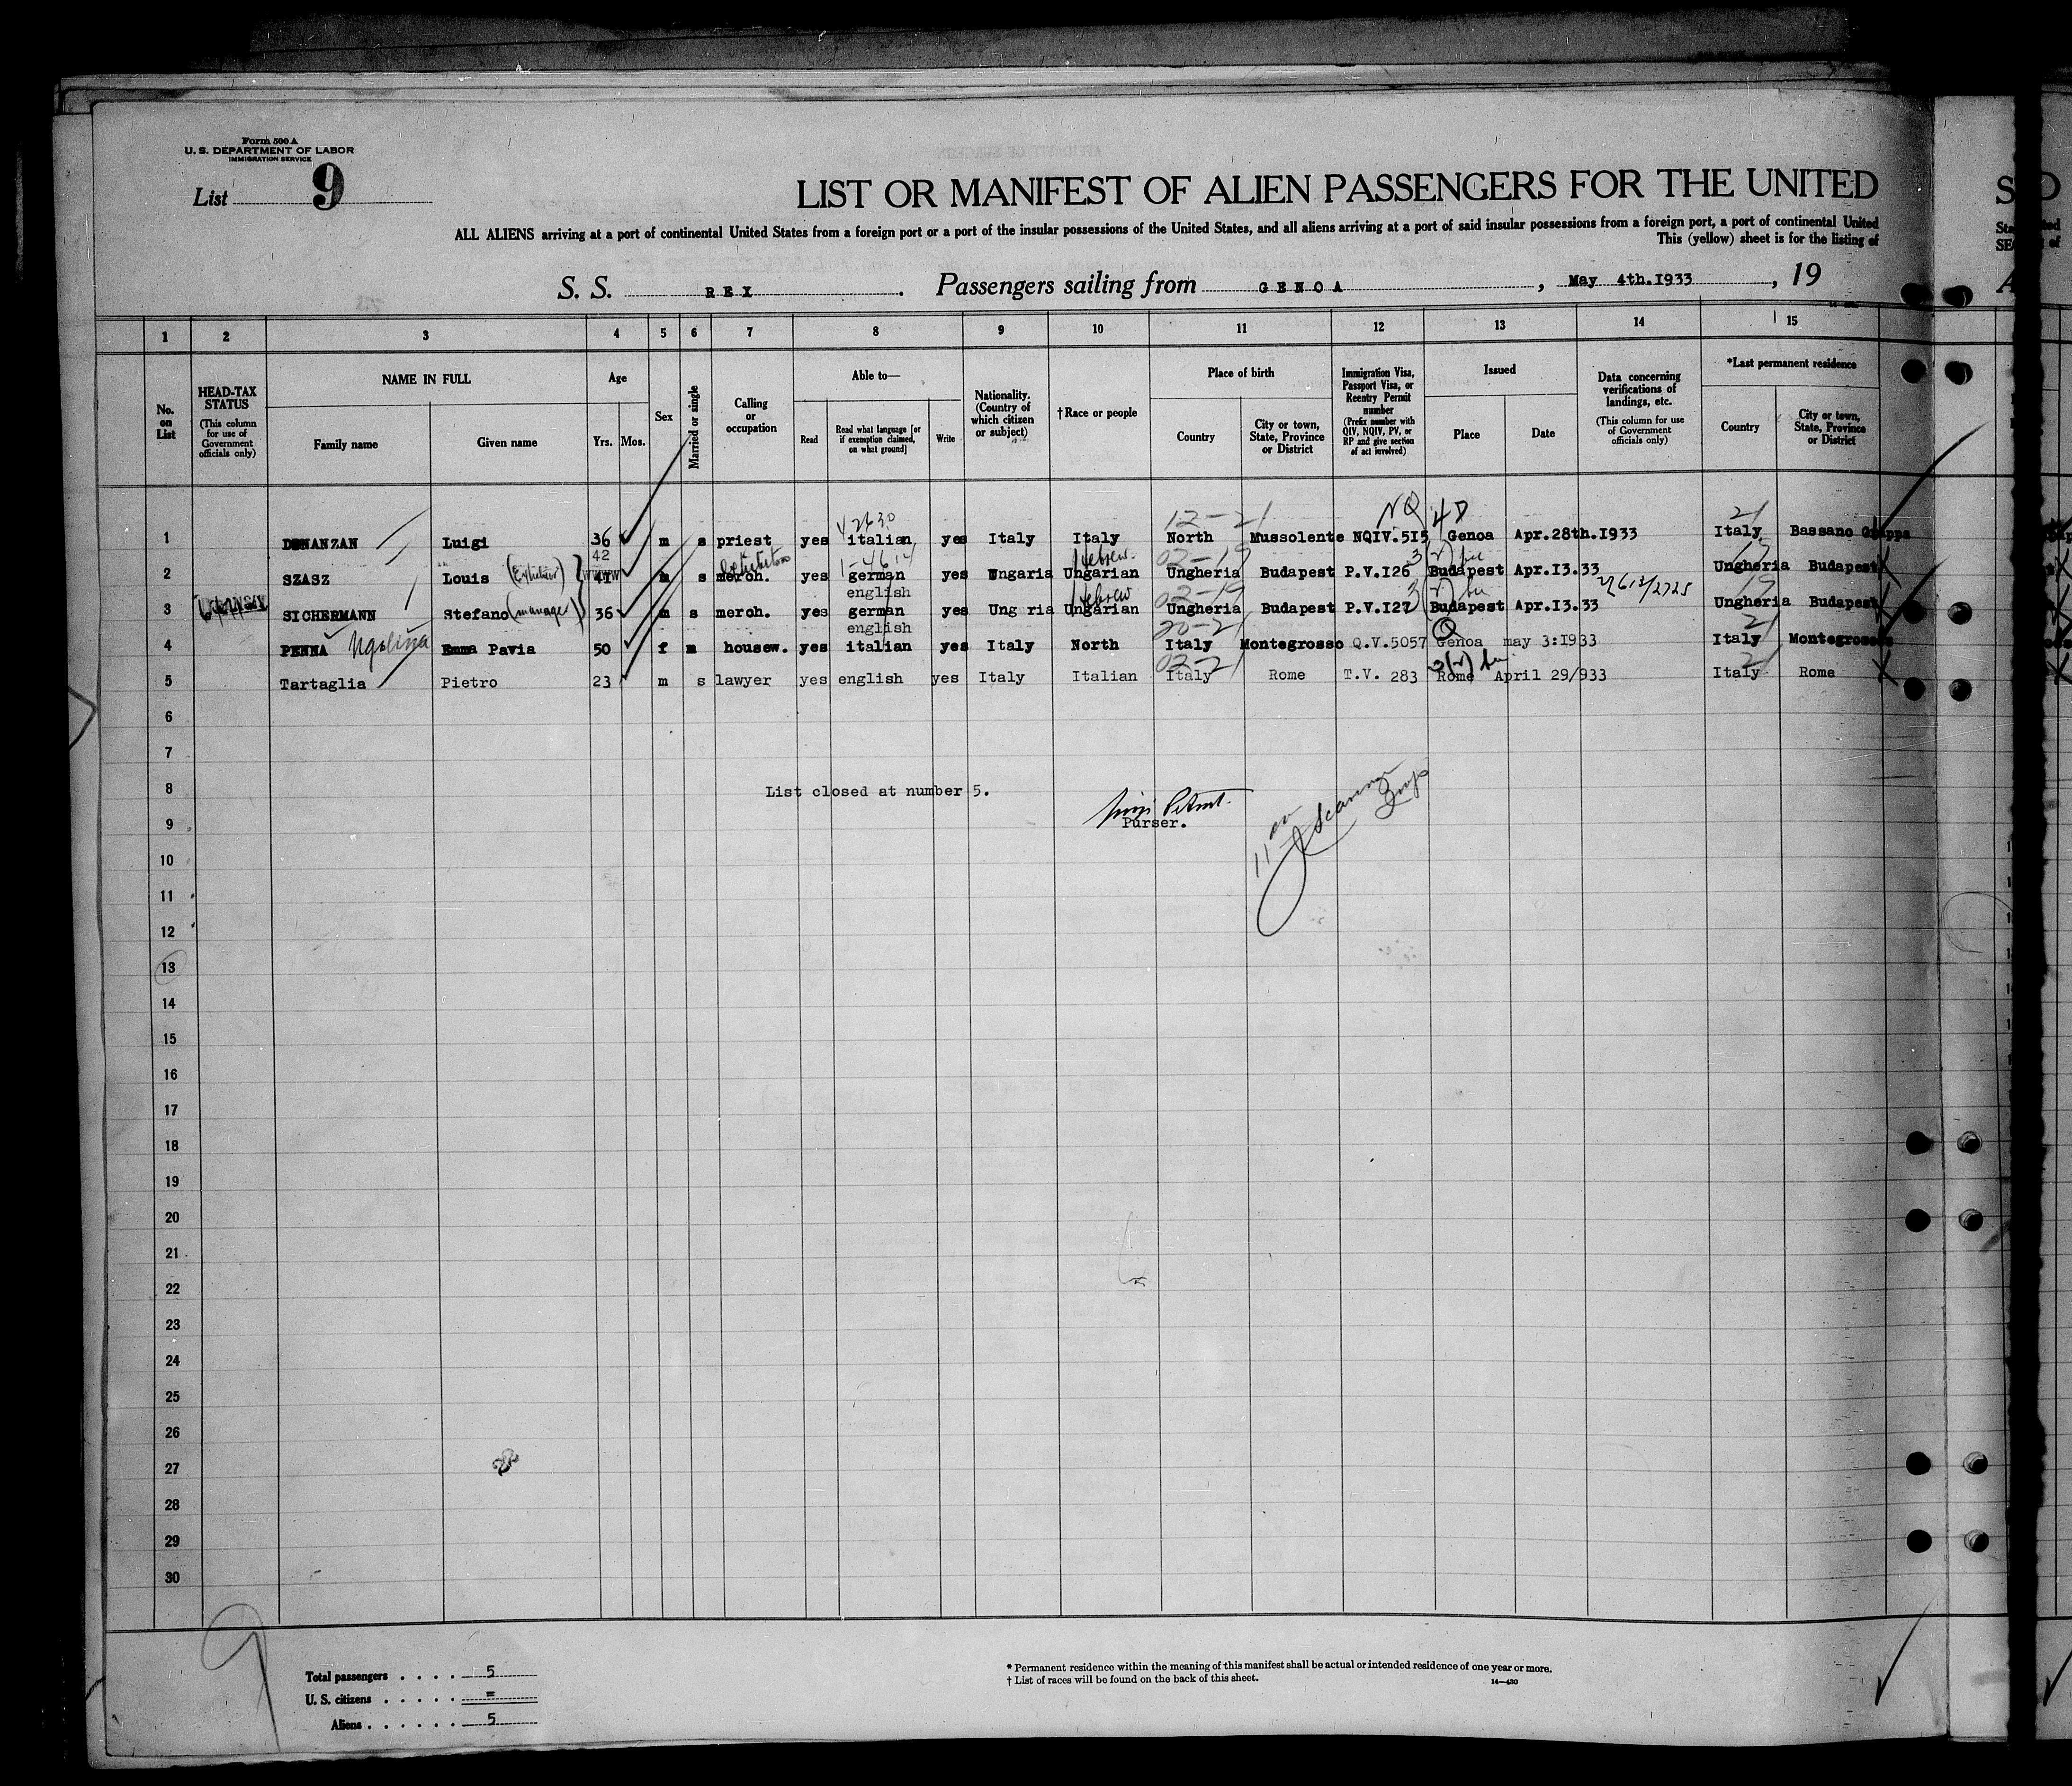 Form 500 A
U. S. DEPARTMENT OF LABOR
IMMIGRATION SERVICE
List 9
LIST OR MANIFEST OF ALIEN PASSENGERS FOR THE UNITED
ALL ALIENS arriving at a port of continental United States from a foreign port or a port of the insular possessions of the United States, and all aliens arriving at a port of said insular possessions from a foreign port, a port of continental United
This (yellow) sheet is for the listing of
S. S. REX. Passengers sailing from GENOA, May 4th.1933, 19
1 2 3 4 5 6 7 8 9 10 11 12 13 14 15
No. on List
HEAD-TAX STATUS (This column for use of Government officials only)
NAME IN FULL
Family name Given name
Age
Yrs. Mos.
Sex
Married or single
Calling or occupation
Able to—
Read
Read what language [or if exemption claimed, on what ground]
Write
Nationality. (Country of which citizen or subject)
† Race or people
Place of birth
Country
City or town, State, Province or District
Immigration Visa, Passport Visa, or Reentry Permit number (Prefix number with QIV, NQIV, PV, or RP and give section of act involved)
Issued
Place Date
Data concerning verifications of landings, etc. (This column for use of Government officials only)
*Last permanent residence
Country
City or town, State, Province or District
NQ 4D
12-21 21
1 DONANZAN Luigi 36 m s priest yes italian yes Italy Italy North Mussolente NQIV.5I5 Genoa Apr.28th.I933 Italy Bassano Grappa
42 Hebrew 02-19 19
2 SZASZ Louis (Exhibitor) 41 m s merch. yes german yes Ungaria Ungarian Ungheria Budapest P.V.I26 Budapest Apr.I3.33 Ungheria Budapest
english Hebrew 02-19 19
3 SICHERMANN Stefano (manager) 36 m s merch. yes german yes Ung ria Ungarian Ungheria Budapest P.V.I27 Budapest Apr.I3.33 Ungheria Budapest
english 20-21 Q 21
4 PENNA Emma Pavia 50 f m housew. yes italian yes Italy North Italy Montegrosso Q.V.5057 Genoa may 3:I933 Italy Montegrosso
02-21 21
5 Tartaglia Pietro 23 m s lawyer yes english yes Italy Italian Italy Rome T.V. 283 Rome April 29/933 Italy Rome
6
7
8 List closed at number 5.
9 Purser.
10
11
12
13
14
15
16
17
18
19
20
21
22
23
24
25
26
27
28
29
30
9
Total passengers . . . . 5
U. S. citizens . . . . . =
Aliens . . . . . . 5
* Permanent residence within the meaning of this manifest shall be actual or intended residence of one year or more.
† List of races will be found on the back of this sheet.
14—430